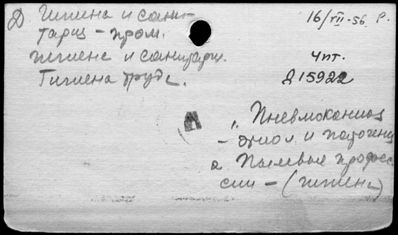 Д Гигиена и сани-
тария - пром.
гигиена и санитари.
Гигиена труда.
16/VII-56. Р.
Чит.
Д15922
1. Пневмокониоз
- этиол. и патогенез
2. Пылевые професс
сии - (гигиена)